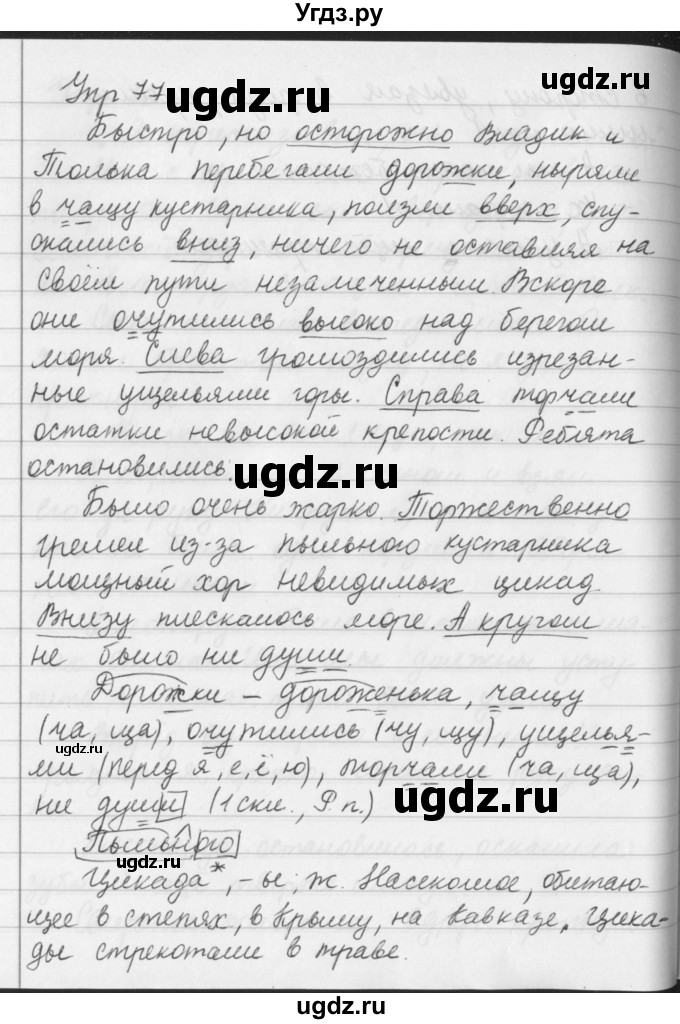 Угдз.ру
ugdz.ru
Упр 77
ugdz.ru
Быстро, но осторожно Владик и
Толька перебегали дорожки, ныряли
в чащу кустарника, ползли вверх, спу-
ugdz.ru
скались вниз, ничего не оставляя на
своём пути незамеченным. Вскоре
они очутились высоко над берегом
моря. Слева громоздились изрезан-
ные ущельями горы. Справа торчали
остатки невысокой крепости. Ребята
остановились.
ugdz.ru
Было очень жарко. Торжественно
гремел из-за пыльного кустарника
мощный хор невидимых цикад.
Внизу плескалось море. А кругом
не было ни души.
Дорожки – дороженька, чащу
(ча, ща), очутились (чу, щу), ущелья-
ugdz.ru
ми (перед я, е, ё, ю), торчали (ча, ща),
ни души (1 скл., Р.п.)
ugdz.ru
Пыльного
ugdz.ru
Цикада*, -ы, ж. Насекомое, обитаю-
щее в степях, в Крыму, на Кавказе. Цика-
ды стрекотали в траве.
ugdz.ru